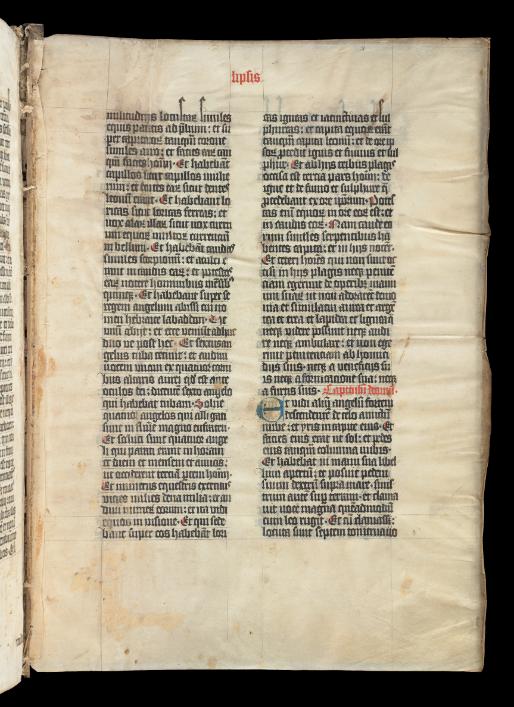 lipsis
militudines locustarum similes
equis paratis ad prelium: et su
per capita earum tanquam corone
similes auro: et facies earum tan
quam facies hominum. Et habebant
capillos sicut capillos mulie
rum: et dentes earum sicut dentes
leonum erant. Et habebant lo
ricas sicut loricas ferreas: et
vox alarum earum sicut vox curru
um equorum multorum currentium
in bellum. Et habebant caudas
similes scorpionum: et aculei e
rant in caudis earum: et potestas
earum nocere hominibus mensibus
quinque. Et habebant super se
regem angelum abissi cui no
men hebraice labaddon. Ve
unum abiit: et ecce veniunt adhuc
duo ve post hec. Et sextus an
gelus tuba cecinit: et audivi
vocem unam ex quatuor corni
bus altaris aurei quod est ante
oculos dei: dicentem sexto angelo
qui habebat tubam. Solve
quatuor angelos qui alligati
sunt in flumine magno eufraten.
Et soluti sunt quatuor ange
li qui parati erant in horam
et diem et mensem et annum:
ut occiderent terciam partem hominum.
Et numerus equestris exercitus
vicies milies dena milia: et au
divi numerum eorum: et ita vidi
equos in visione. Et qui sede
bant super eos habebant lori
cas igneas et iacinctinas et sul
phureas: et capita equorum erant
tanquam capita leonum: et de ore ip
sorum procedit ignis et fumus et sul
phur. Et ab hiis tribus plagis
occisa est tercia pars hominum: de
igne et de fumo et sulphure que
procedebant ex ore ipsorum. Potes
tas enim equorum in ore eorum est: et
in caudis eorum. Nam caude eo
rum similes serpentibus ha
bentes capita: et in hiis nocent.
Et ceteri homines qui non sunt oc
cisi in hiis plagis neque peniten
tiam egerunt de operibus manu
um suarum ut non adorarent demo
nia et simulacra aurea et argen
tea et erea et lapidea et lignea que
neque videre possunt neque audi
re neque ambulare: et non ege
runt penitentiam ab homici
diis suis: neque a veneficiis su
is neque a fornicatione sua: neque
a furtis suis. Capitulum decimum.
Et vidi alium angelum fortem
descendentem de celo amictum
nube: et yris in capite eius. Et
facies eius erat ut sol: et pedes
eius tanquam columna ignis.
Et habebat in manu sua libel
lum apertum: et posuit pedem
suum dextrum supra mare: sinis
trum autem super terram: et clama
vit voce magna quemadmodum
cum leo rugit. Et cum clamasset:
locuta sunt septem tonitrua vo